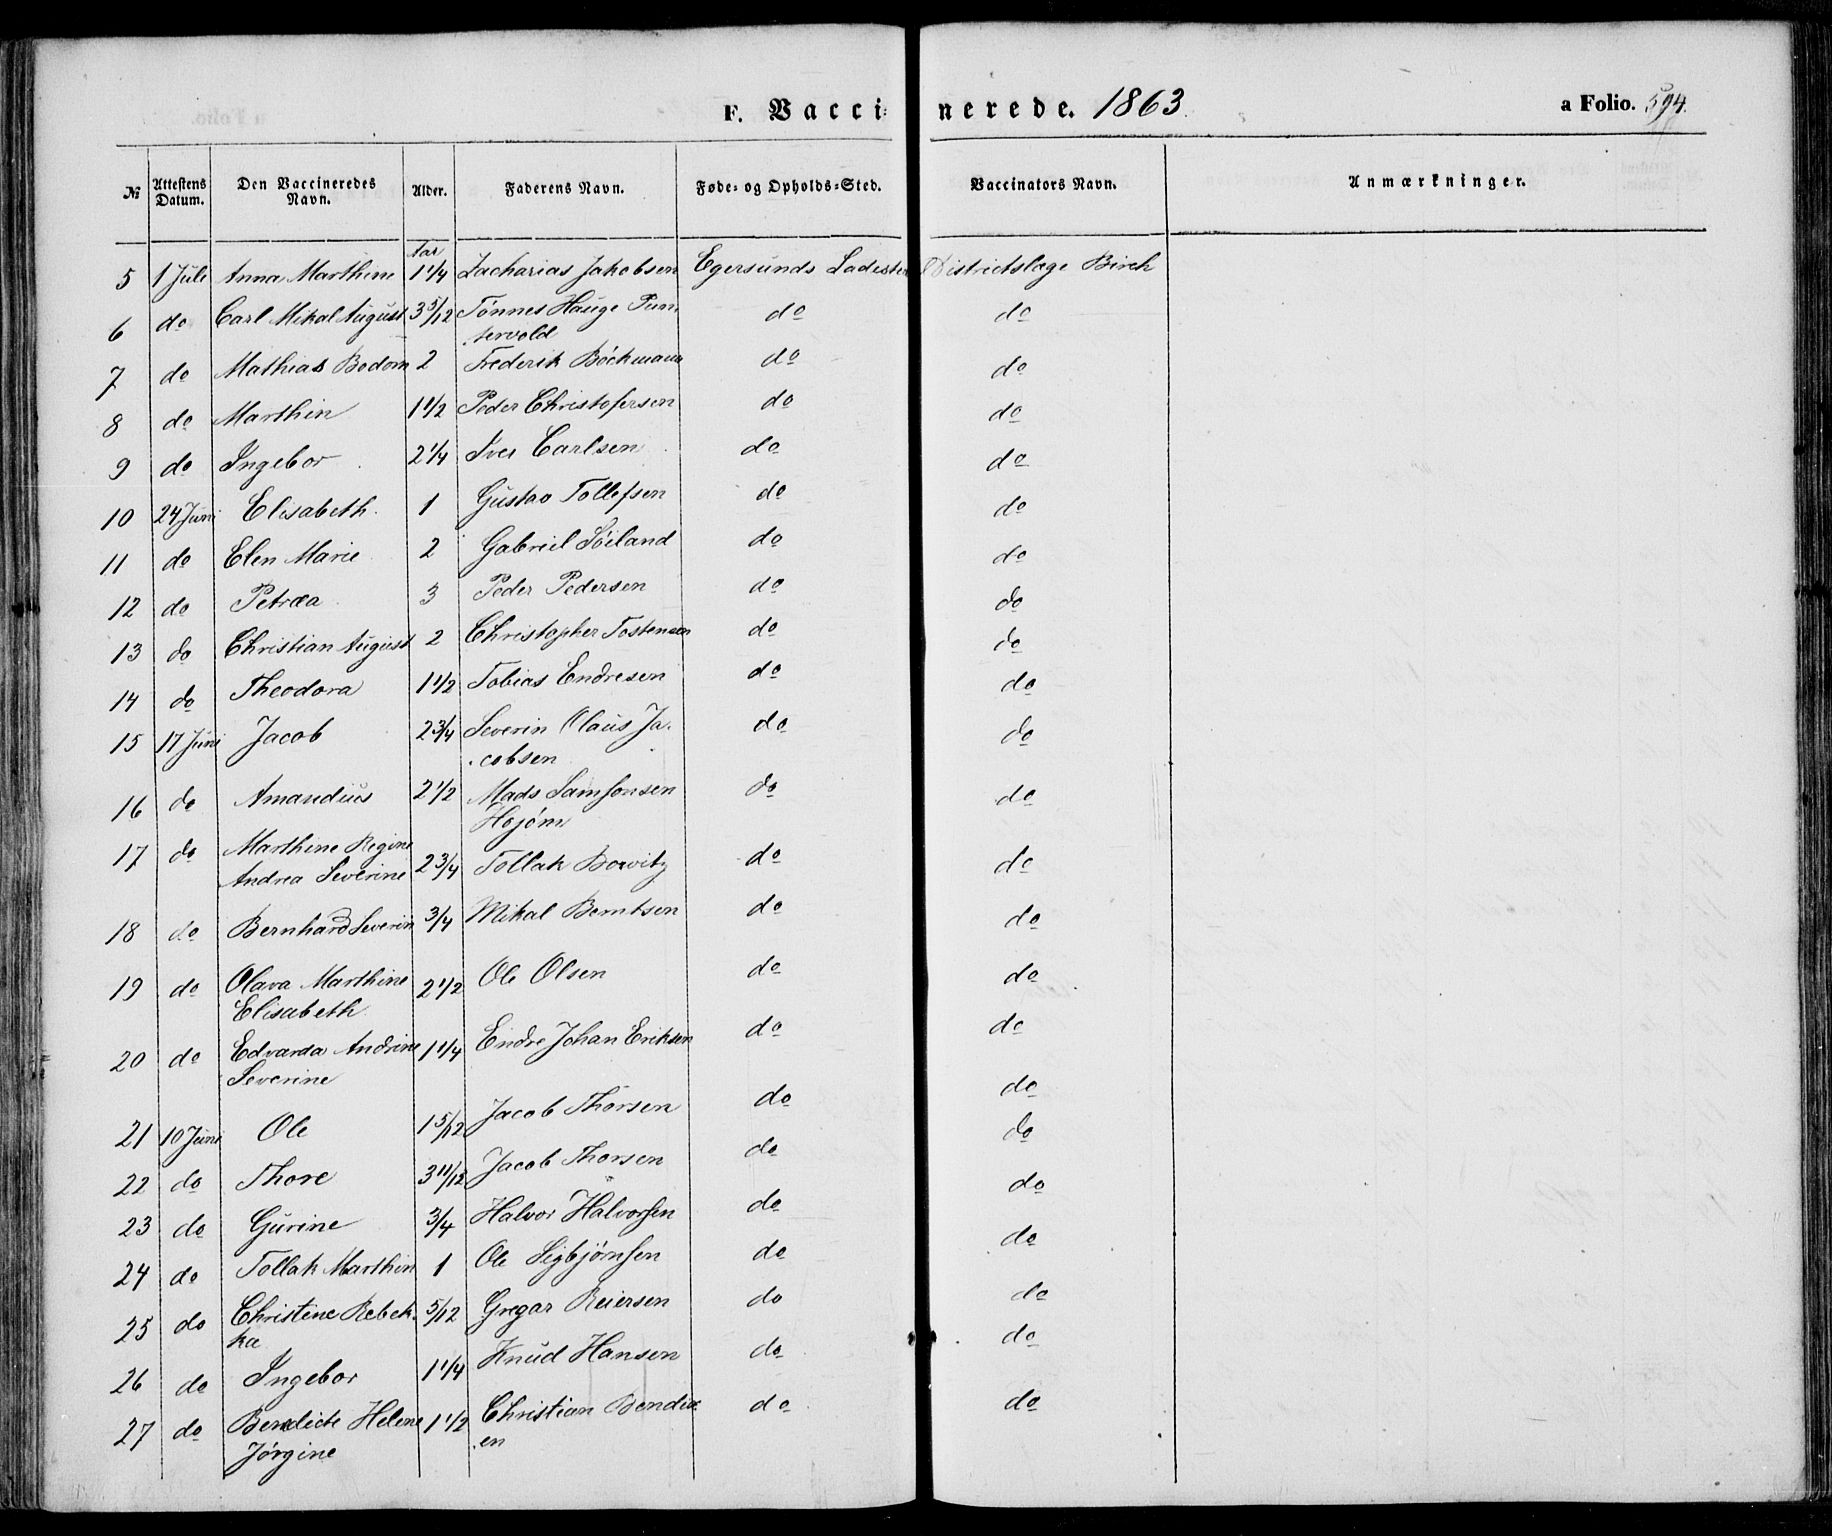 F. Vaccinerede. 1863. a Folio. 594.
№ Attestens Datum. Den Vaccineredes Navn. Alder. Faderens Navn. Føde- og Opholds-Sted. Vaccinators Navn. Anmærkninger.
Aar
5 1 Juli Anna Marthine 1 1/4 Zacharias Jakobsen Egersunds Ladested Districtslæge Birch
6 do Carl Mikal August 3 5/12 Tønnes Hauge Pun- do do
tervold
7 do Mathias Bodom 2 Frederik Bøckmann do do
8 do Marthin 1 1/2 Peder Christofersen do do
9 do Ingebor 2 1/4 Iver Carlsen do do
10 24 Juni Elisabeth 1 Gustav Tollefsen do do
11 do Elen Marie 2 Gabreil Søiland do do
12 do Petræa 3 Peder Pedersen do do
13 do Christian August 2 Christopher Tostensen do do
14 do Theodora 1 1/2 Tobias Endresen do do
15 17 Juni Jacob 2 3/4 Severin Olaus Ja- do do
cobsen
16 do Amandus 2 1/2 Mads Samsonsen do do
17 do Marthine Regine
Andrea Severine 2 3/4 Tollak do do
18 do Bernhard Severin 3/4 Mikal Berntsen do do
19 do Olava Marthine 2 1/2 Ole Olsen do do
Elisabeth
20 do Edvarda Andrine 1 1/4 Endre Johan Eriksen do do
Severine
21 10 Juni Ole 1 5/12 Jacob Thorsen do do
22 do Thore 3 11/12 Jacob Thorsen do do
23 do Gurine 3/4 Halvor Halvorsen do do
24 do Tollak Marthin 1 Ole Sigbjørnsen do do
25 do Christine Rebek- 5/12 Gregar Reiersen do do
ka
26 do Ingebor 1 1/4 Knud Hansen do do
27 do Benedicte Helene 1 1/2 Christian Bendix do do
Jørgine en